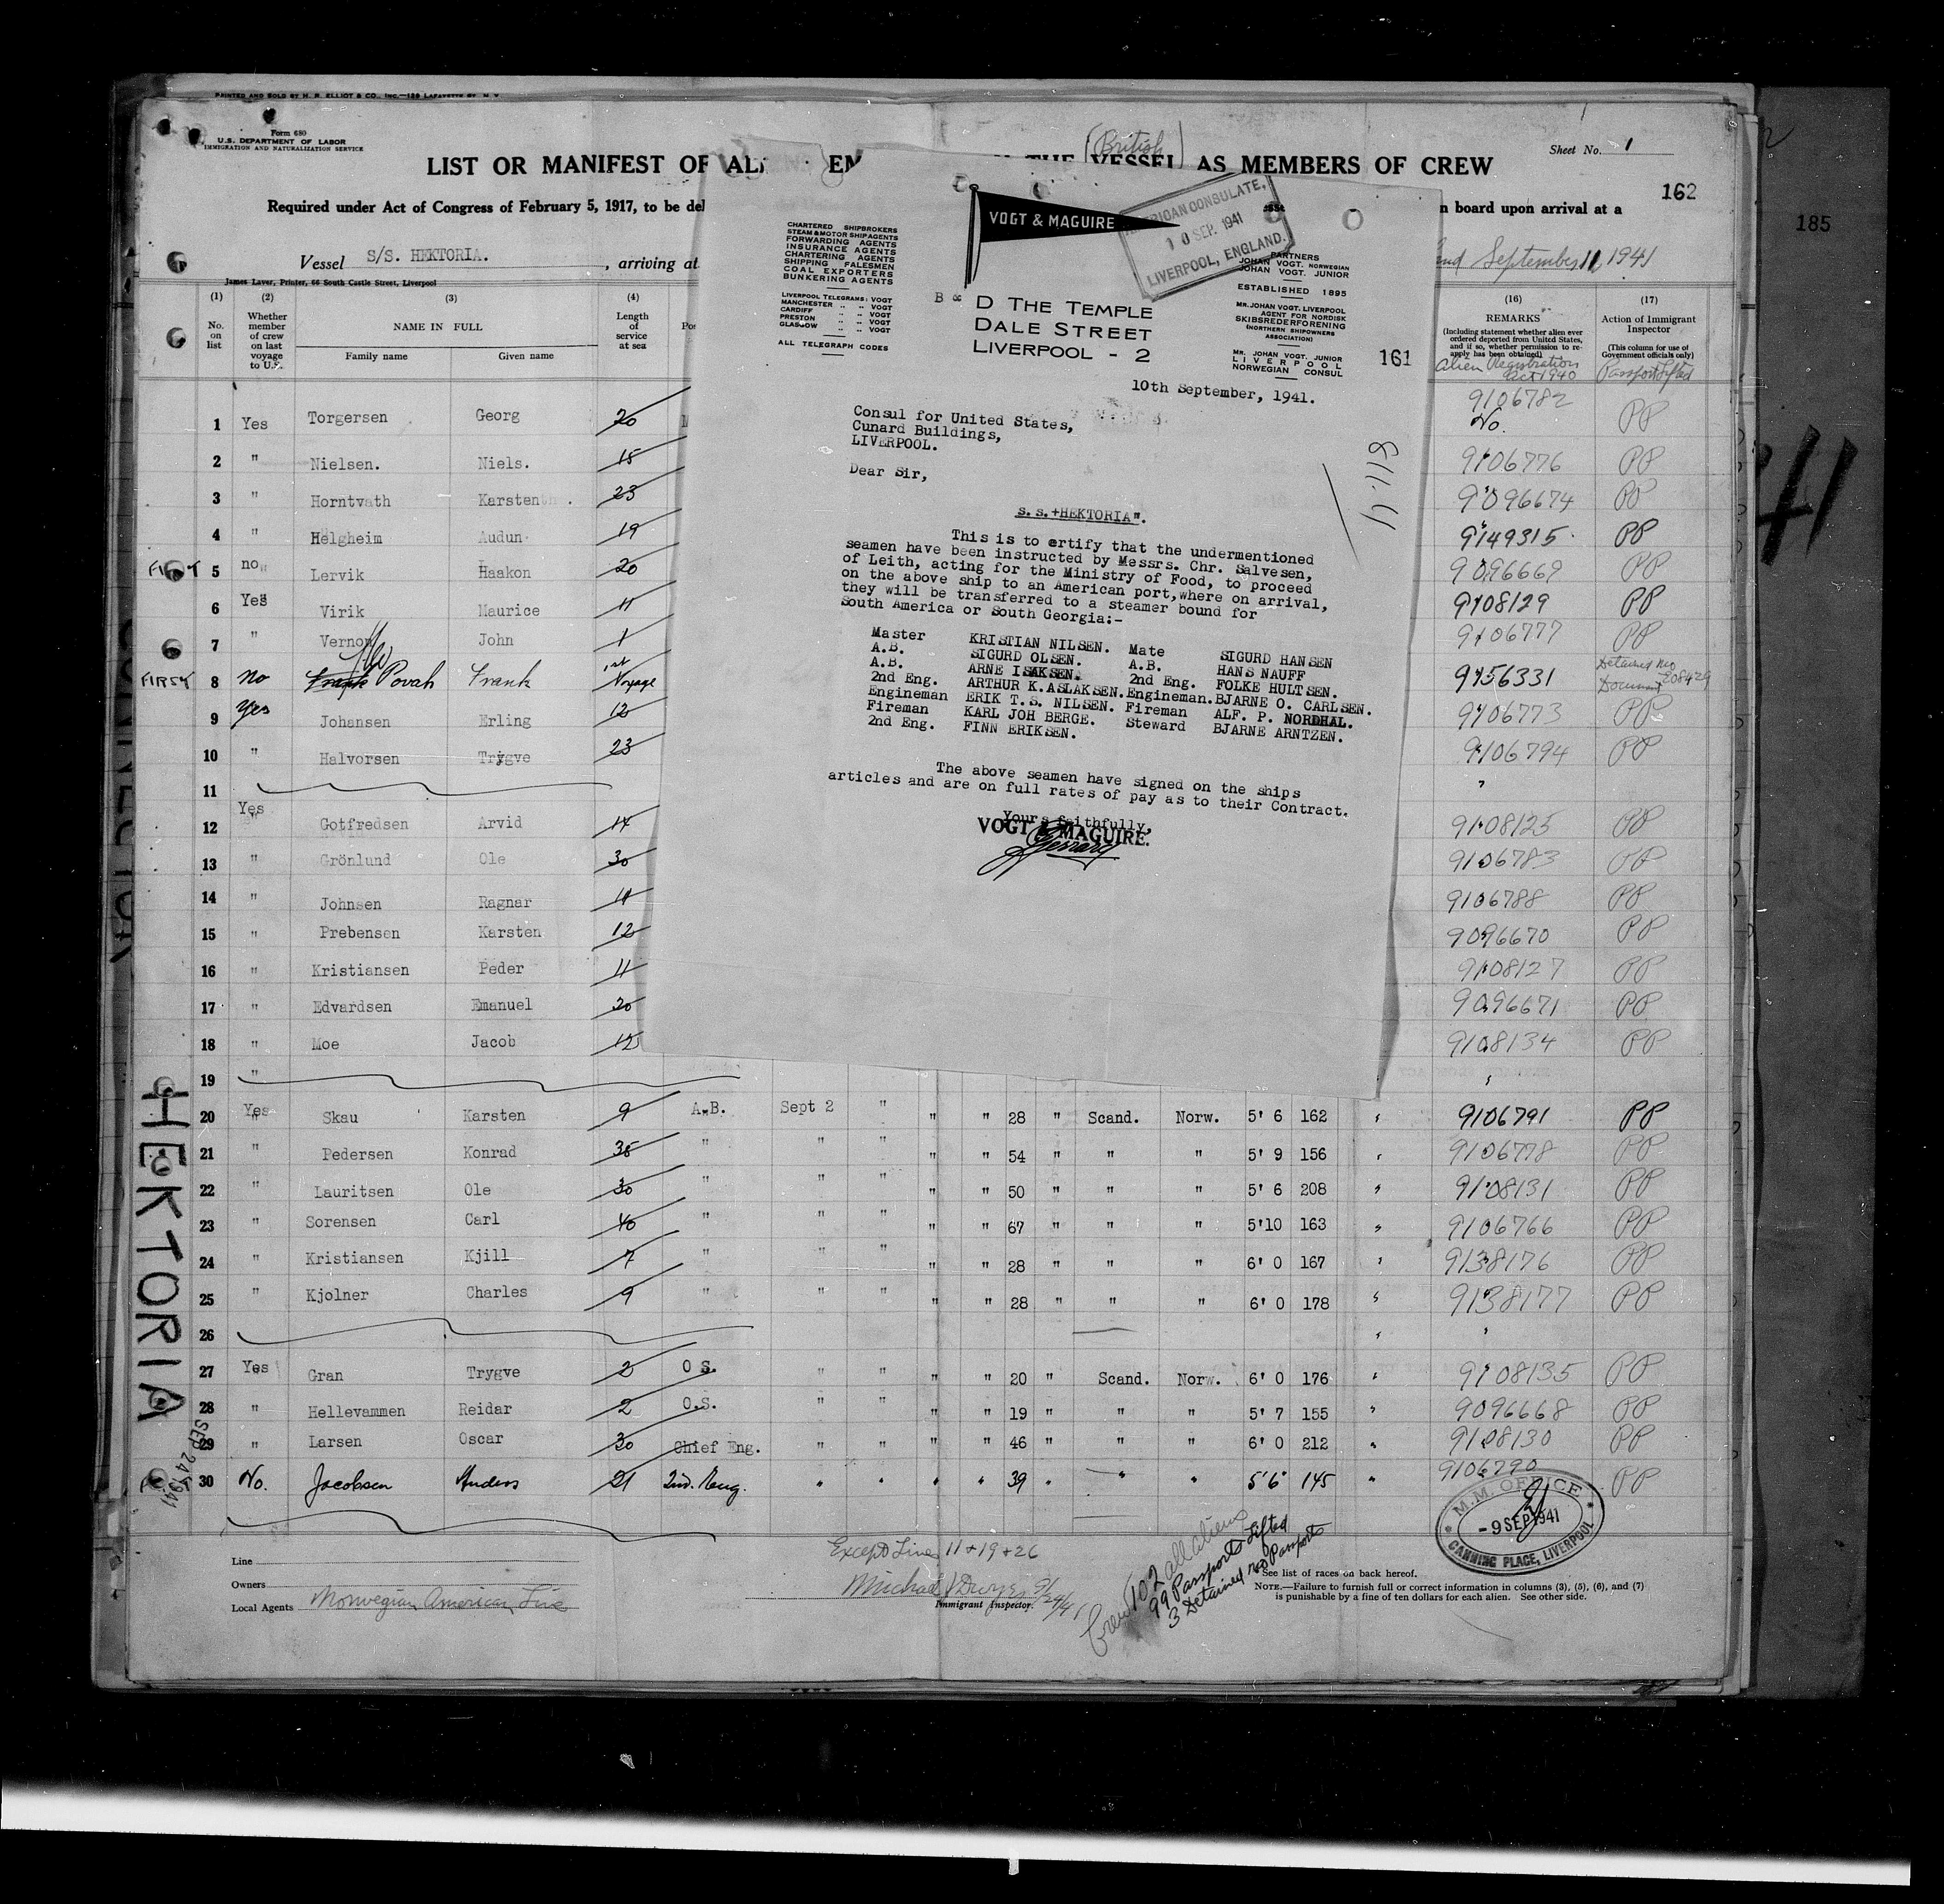 PRINTED AND SOLD BY H. R. ELLIOT & CO., INC.—129 LAFAYETTE ST. N. Y.
Form 680
U.S. DEPARTMENT OF LABOR
IMMIGRATION AND NATURALIZATION SERVICE
(British)
Sheet No. 1
LIST OR MANIFEST OF AL EM THE VESSEL AS MEMBERS OF CREW
162
185
Required under Act of Congress of February 5, 1917, to be del n board upon arrival at a
Vessel S/S. HEKTORIA. , arriving at September 11, 1941
James Laver, Printer, 66 South Castle Street, Liverpool
(1) (2) (3) (4) (16) (17)
No. on list
Whether member of crew on last voyage to U.S.
NAME IN FULL
Family name Given name
Length of service at sea
REMARKS
(Including statement whether alien ever ordered deported from United States, and if so, whether permission to re-apply has been obtained)
Alien Registration Act 1940
Action of Immigrant Inspector
(This column for use of Government officials only)
Passport Lifted
VOGT & MAGUIRE
AMERICAN CONSULATE,
10 SEP. 1941
LIVERPOOL, ENGLAND.
CHARTERED SHIPBROKERS
STEAM & MOTOR SHIP AGENTS
FORWARDING AGENTS
INSURANCE AGENTS
CHARTERING AGENTS
SHIPPING FALESMEN
COAL EXPORTERS
BUNKERING AGENTS
LIVERPOOL TELEGRAMS: VOGT
MANCHESTER " " VOGT
CARDIFF " " VOGT
PRESTON " " VOGT
GLASGOW " " VOGT
ALL TELEGRAPH CODES
PARTNERS
JOHAN VOGT. NORWEGIAN
JOHAN VOGT. JUNIOR
ESTABLISHED 1895
MR. JOHAN VOGT. LIVERPOOL
AGENT FOR NORDISK
SKIBSREDERFORENING
(NORTHERN SHIPOWNERS
ASSOCIATION)
MR. JOHAN VOGT. JUNIOR
LIVERPOOL
NORWEGIAN CONSUL
B & D THE TEMPLE
DALE STREET
LIVERPOOL - 2
161
10th September, 1941.
Consul for United States,
Cunard Buildings,
LIVERPOOL.
Dear Sir,
811.11
s.s. "HEKTORIA".
This is to ertify that the undermentioned
seamen have been instructed by Messrs. Chr. Salvesen,
of Leith, acting for the Ministry of Food, to proceed
on the above ship to an American port, where on arrival,
they will be transferred to a steamer bound for
South America or South Georgia:-
Master KRISTIAN NILSEN. Mate SIGURD HANSEN
A.B. SIGURD OLSEN. A.B. HANS NAUFF
A.B. ARNE ISAKSEN. 2nd Eng. FOLKE HULTSEN.
2nd Eng. ARTHUR K. ASLAKSEN. Engineman. BJARNE O. CARLSEN.
Engineman ERIK T.S. NILSEN. Fireman ALF. P. NORDHAL.
Fireman KARL JOH BERGE. Steward BJARNE ARNTZEN.
2nd Eng. FINN ERIKSEN.
The above seamen have signed on the ships
articles and are on full rates of pay as to their Contract.
Yours faithfully,
VOGT & MAGUIRE.
1 Yes Torgersen Georg 20 9106782 No. PP
2 " Nielsen. Niels. 15 9106776 PP
3 " Horntvath Karsten 23 9096674 PP
4 " Helgheim Audun 19 9149315 PP
FIRST 5 no Lervik Haakon 20 9096669 PP
6 Yes Virik Maurice 11 9108129 PP
7 " Vernon John 1 9106777 PP
FIRST 8 no Frank Povah Frank 1st Voyage 9156331 Detained No Document 208429
9 Yes Johansen Erling 12 9106773 PP
10 " Halvorsen Trygve 23 9106794 PP
11
12 Yes Gotfredsen Arvid 14 9108125 PP
13 " Grönlund Ole 30 9106783 PP
14 " Johnsen Ragnar 11 9106788 PP
15 " Prebensen Karsten 12 9096670 PP
16 " Kristiansen Peder 11 9108127 PP
17 " Edvardsen Emanuel 20 9096671 PP
18 " Moe Jacob 12 9108134 PP
19 "
20 Yes Skau Karsten 9 A.B. Sept 2 " " " 28 " Scand. Norw. 5' 6 162 9106791 PP
21 " Pedersen Konrad 35 " " " " " 54 " " " 5' 9 156 9106778 PP
22 " Lauritsen Ole 30 " " " " " 50 " " " 5' 6 208 9108131 PP
23 " Sorensen Carl 40 " " " " " 67 " " " 5'10 163 9106766 PP
24 " Kristiansen Kjill 7 " " " " " 28 " " " 6' 0 167 9138176 PP
25 " Kjolner Charles 9 " " " " " 28 " " " 6' 0 178 9138177 PP
26
27 Yes Gran Trygve 2 O S. " " " " 20 " Scand. Norw. 6' 0 176 9108135 PP
28 " Hellevammen Reidar 2 O.S. " " " " 19 " " " 5' 7 155 9096668 PP
29 " Larsen Oscar 30 Chief Eng. " " " " 46 " " " 6' 0 212 9108130 PP
30 No. Jacobsen Anders 21 2nd. Eng. " " " " 39 " " " 5'6" 145 " 9106790 PP
HEKTORIA
SEP 24 1941
M.M. OFFICE
-9 SEP 1941
CANNING PLACE, LIVERPOOL
Except Lines 11 + 19 + 26
Line
Owners
Local Agents Norwegian American Line
Michael J Dwyer 9/24/41
Immigrant Inspector.
Crew 102 all aliens
99 Passports Lifted
3 Detained no Passports
See list of races on back hereof.
NOTE.—Failure to furnish full or correct information in columns (3), (5), (6), and (7)
is punishable by a fine of ten dollars for each alien. See other side.